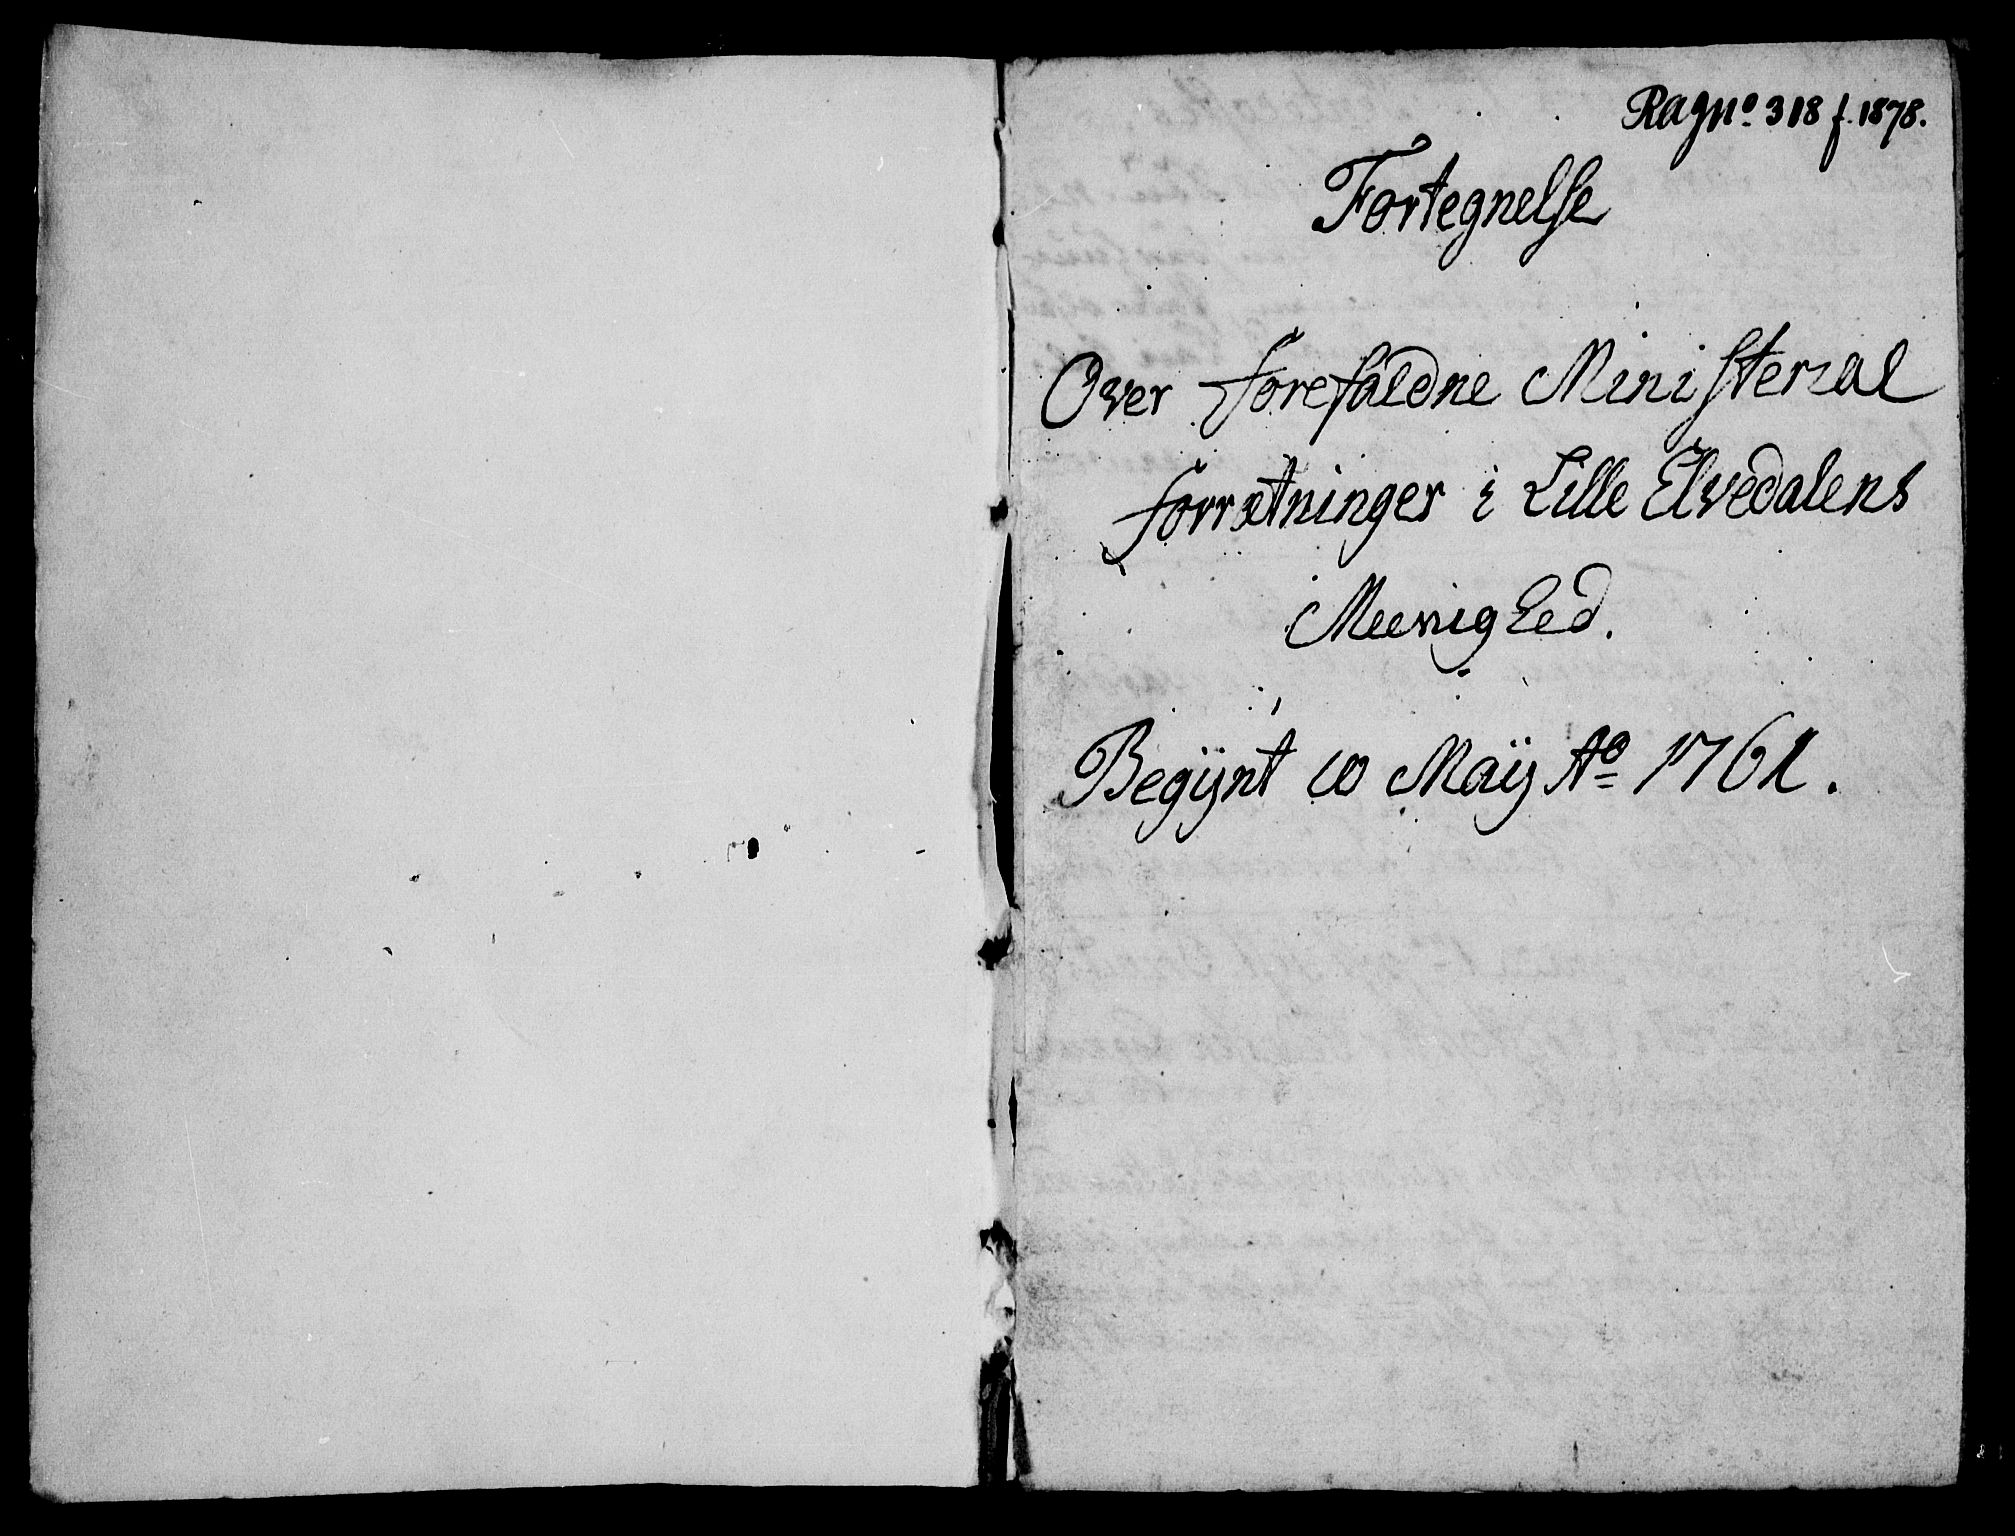 Ragno. 318 f. 1878.
Fortegnelse
Over forefaldne Ministerial
forrætninger i Lille Elvedalens
Meenighed.
Begÿnt 10 Maÿ Ao 1761.